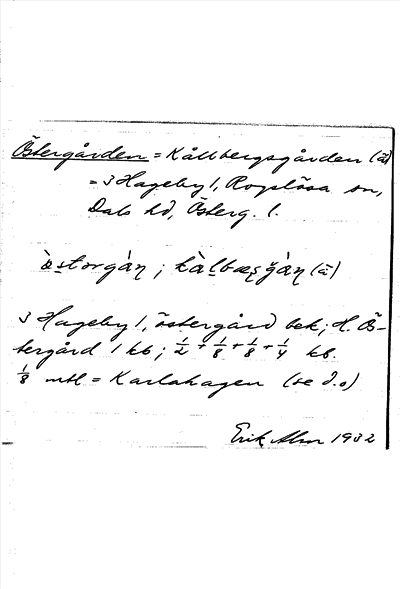 Östergården = Kållbergsgården (ä)
= 3 Hageby 1, Rogslösa sn,
Dals hd, Österg. l.
òstorgàn ; kàlbærsgàn (ä)
3 Hageby 1, östergård bek; H. Ö-
tergård 1 kb; 1/2 + 1/8 + 1/8 + 1/4 kb.
1/8 mtl = Karlahagen (se d.o)
Erik Alm 1932